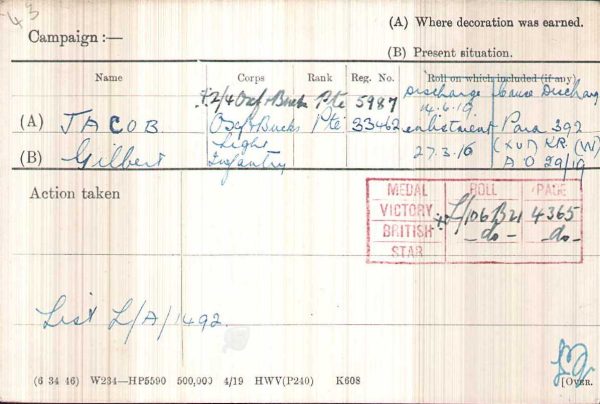 43
(A) Where decoration was earned.
Campaign :—
(B) Present situation.
Name Corps Rank Reg. No. Roll on which included (if any)
2/4 Oxf & Bucks Pte 5987 Discharge Cause Discharg
14.6.19.
(A) JACOB. Oxf & Bucks Pte 33462 enlistment Para 392
(B) Gilbert Light 27.3.16 (XVI) KR. (W)
Infantry A O 29/19
Action taken
MEDAL ROLL PAGE
VICTORY L/106B21 4365
BRITISH -do- -do-
STAR
List L/A/1492.
(6 34 46) W234—HP5590 500,000 4/19 HWV(P240) K608
[OVER.